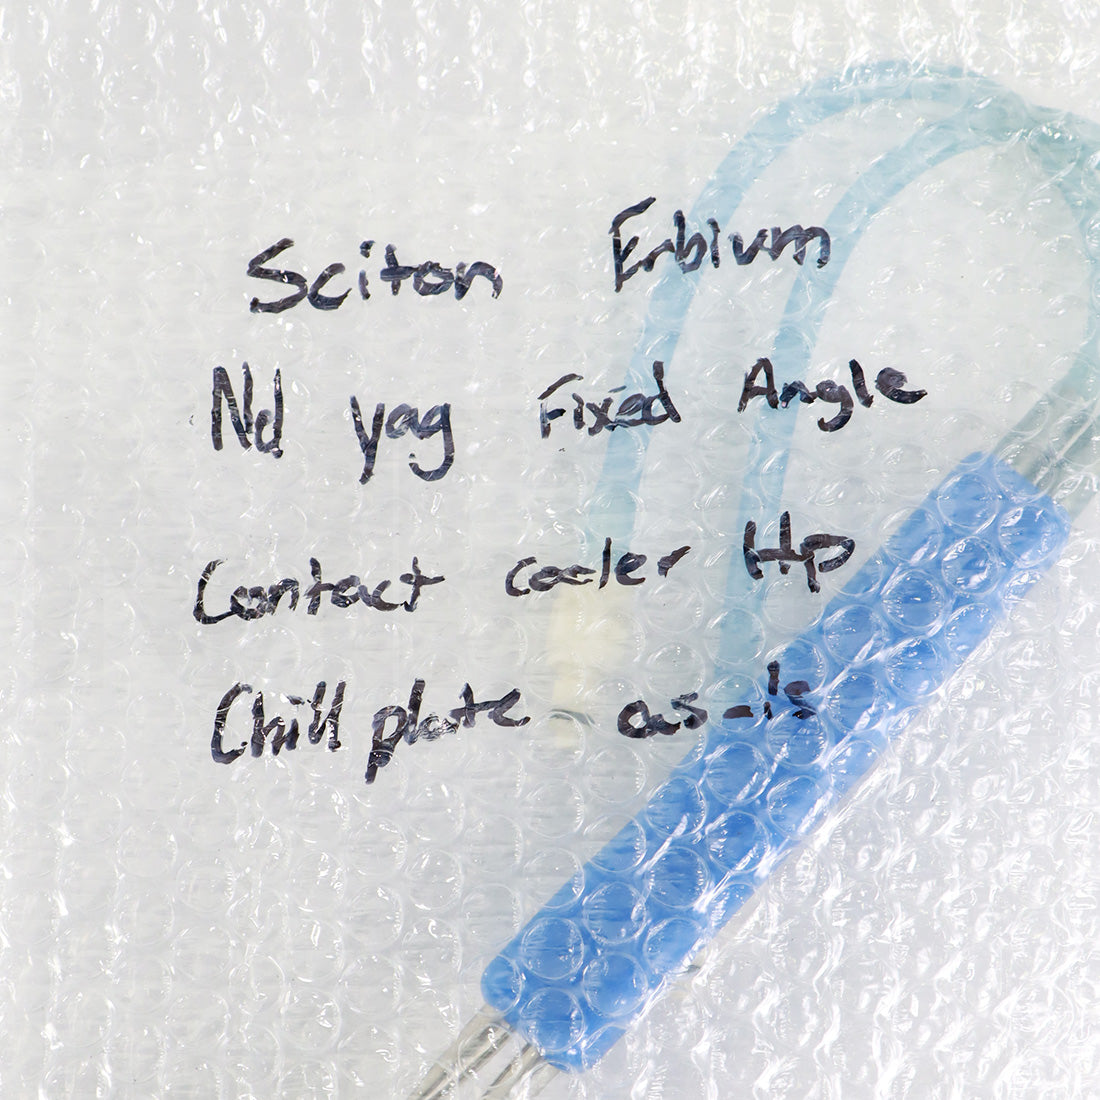 Sciton Erbium
Nd yag Fixed Angle
Contact cooler Hp
Chill plate as-is